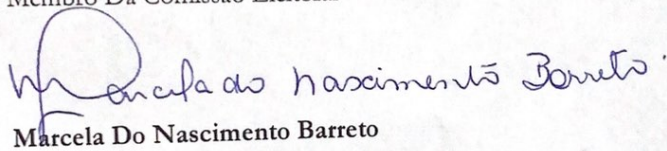 Membro Da Comissão Eleitoral
Marcela do Nascimento Barreto.
Marcela Do Nascimento Barreto